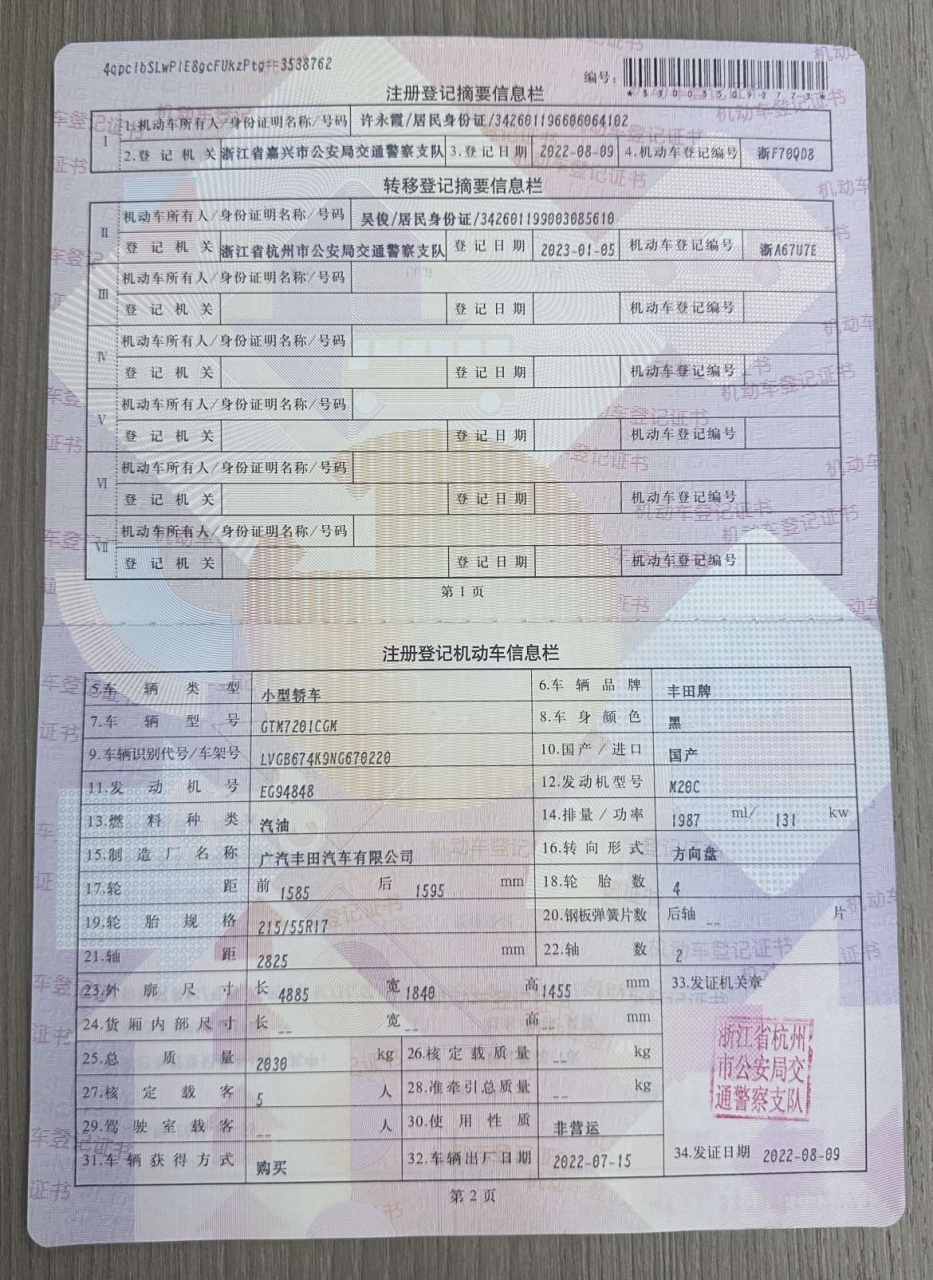 4qpclbSLwPlE8gcFUkzPtg==3538762
编号:
注册登记摘要信息栏
I 1.机动车所有人/身份证明名称/号码 许永霞/居民身份证/342601196606064102
2.登记机关 浙江省嘉兴市公安局交通警察支队 3.登记日期 2022-08-09 4.机动车登记编号 浙F70QD8
转移登记摘要信息栏
II 机动车所有人/身份证明名称/号码 吴俊/居民身份证/342601199003085610
登记机关 浙江省杭州市公安局交通警察支队 登记日期 2023-01-05 机动车登记编号 浙A67U7E
III 机动车所有人/身份证明名称/号码
登记机关 登记日期 机动车登记编号
IV 机动车所有人/身份证明名称/号码
登记机关 登记日期 机动车登记编号
V 机动车所有人/身份证明名称/号码
登记机关 登记日期 机动车登记编号
VI 机动车所有人/身份证明名称/号码
登记机关 登记日期 机动车登记编号
VII 机动车所有人/身份证明名称/号码
登记机关 登记日期 机动车登记编号
第 1 页
注册登记机动车信息栏
5.车辆类型 小型轿车 6.车辆品牌 丰田牌
7.车辆型号 GTM7201CGM 8.车身颜色 黑
9.车辆识别代号/车架号 LVGB674K9NG670220 10.国产/进口 国产
11.发动机号 EG94848 12.发动机型号 M20C
13.燃料种类 汽油 14.排量/功率 1987 ml/ 131 kw
15.制造厂名称 广汽丰田汽车有限公司 16.转向形式 方向盘
17.轮距 前 1585 后 1595 mm 18.轮胎数 4
19.轮胎规格 215/55R17 20.钢板弹簧片数 后轴 -- 片
21.轴距 2825 mm 22.轴数 2
23.外廓尺寸 长 4885 宽 1840 高 1455 mm 33.发证机关章
24.货厢内部尺寸 长 -- 宽 -- 高 -- mm
浙江省杭州
市公安局交
通警察支队
25.总质量 2030 kg 26.核定载质量 -- kg
27.核定载客 5 人 28.准牵引总质量 -- kg
29.驾驶室载客 -- 人 30.使用性质 非营运
31.车辆获得方式 购买 32.车辆出厂日期 2022-07-15 34.发证日期 2022-08-09
第 2 页